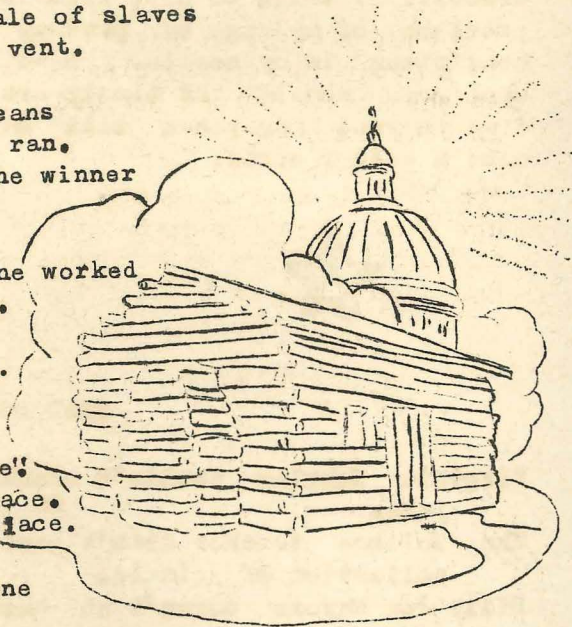 ale of slaves
vent.
eans
ran.
he winner
he worked
.
.
e"!
ace.
lace.
ne